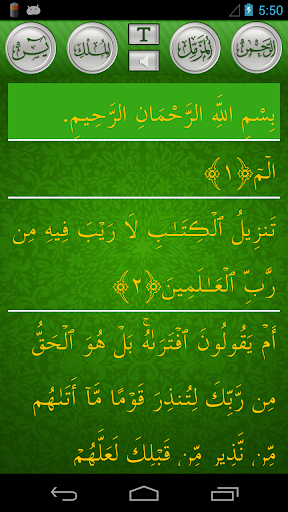 5:50
يٰسٓ
الملك
T
المزمل
الرحمن
بِسْمِ اللَّهِ الرَّحْمَانِ الرَّحِيمِ.
الٓمٓ﴿١﴾
تَنزِيلُ ٱلْكِتَـٰبِ لَا رَيْبَ فِيهِ مِن
رَّبِّ ٱلْعَـٰلَمِينَ﴿٢﴾
أَمْ يَقُولُونَ ٱفْتَرَىٰهُ ۚ بَلْ هُوَ ٱلْحَقُّ
مِن رَّبِّكَ لِتُنذِرَ قَوْمًا مَّآ أَتَىٰهُم
مِّن نَّذِيرٍ مِّن قَبْلِكَ لَعَلَّهُمْ